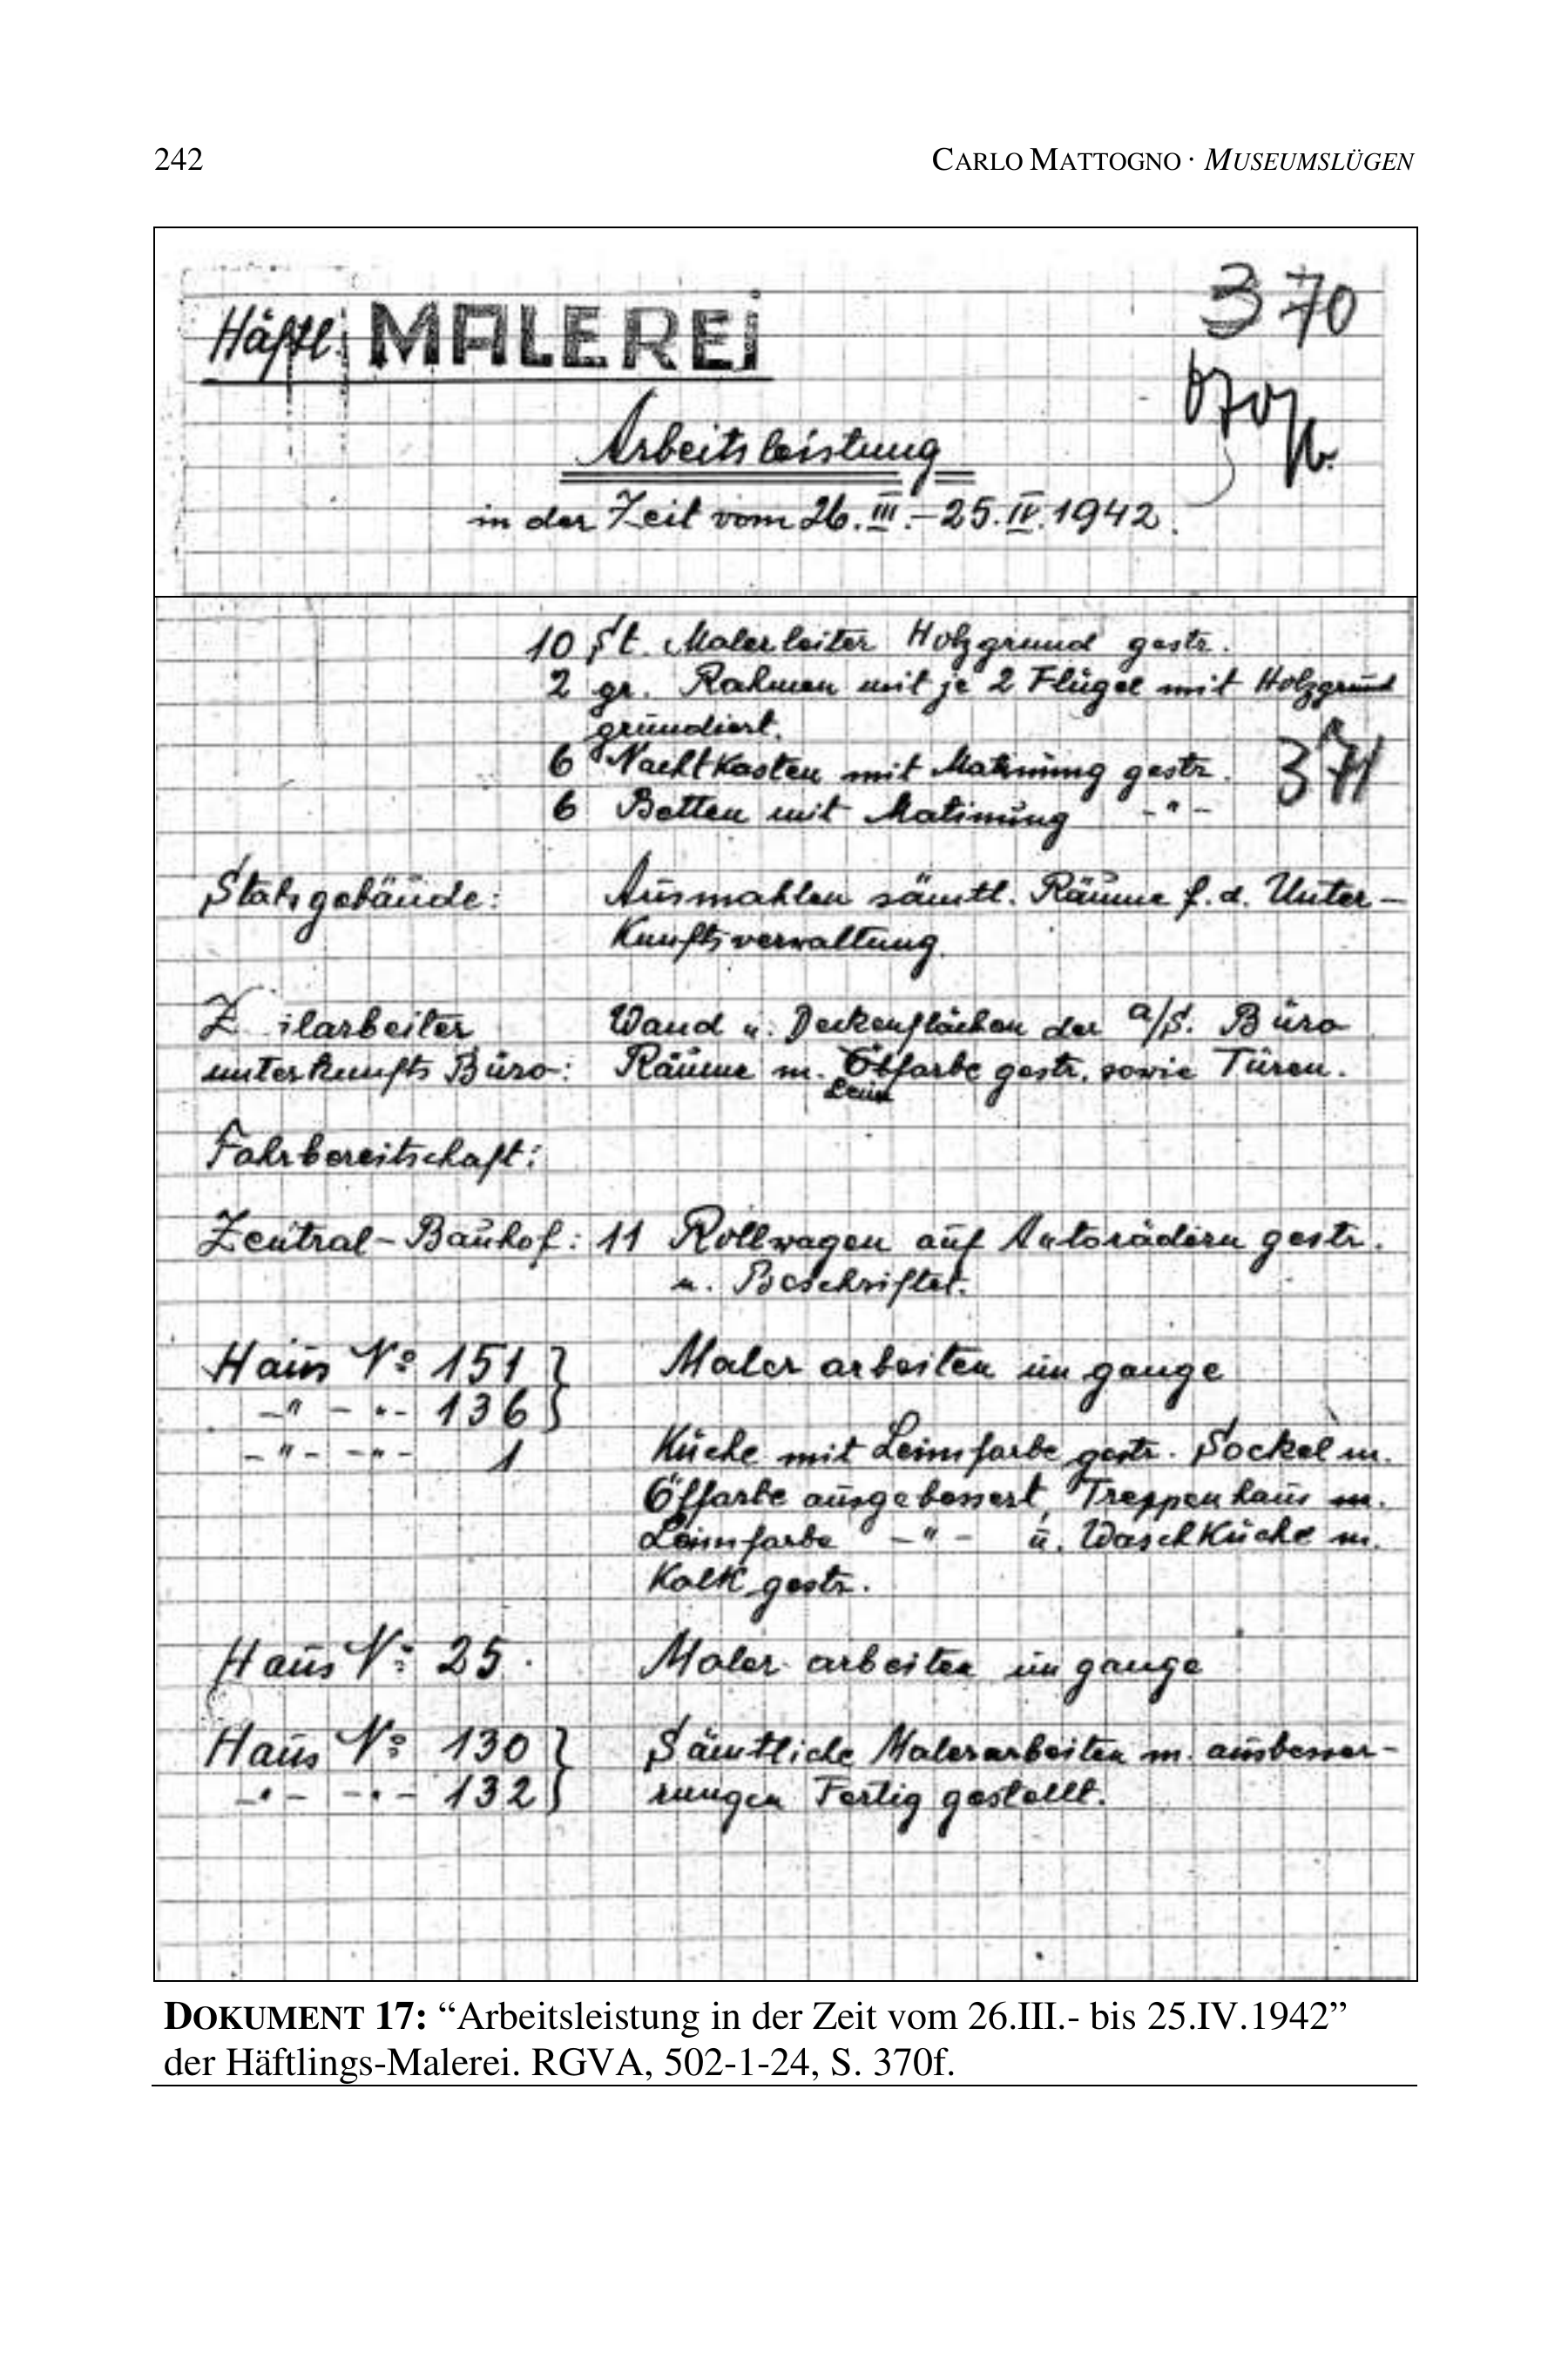 242
CARLO MATTOGNO · MUSEUMSLÜGEN
Häftl. MALEREi
370
Arbeitsleistung
in der Zeit vom 26.III.–25.IV.1942.
10 St. Malerleiter Holzgrund gestr.
2 gr. Rahmen mit je 2 Flügel mit Holzgrund
grundiert.
6 Nachtkasten mit Matinung gestr.
371
6 Betten mit Matinung -"-
Stabsgebäude: Ausmahlen sämtl. Räume f. d. Unter-
kunftsverwaltung.
Z ilarbeiter Wand u. Deckenflächen der a/S. Büro
unterkunfts Büro: Räume m. Ölfarbe gestr. sowie Türen.
Leim
Fahrbereitschaft:
Zentral-Bauhof: 11 Rollwagen auf Autorädern gestr.
u. Beschriftet.
Haus No 151 } Maler arbeiten im gange
-"- -"- 136 }
-"- -"- 1 Küche mit Leimfarbe gestr. Sockel m.
Ölfarbe ausgebessert, Treppenhaus m.
Leimfarbe -"- u. Waschküche m.
Kalk gestr.
Haus No 25. Maler arbeiten im gange
Haus No 130 } Sämtliche Malerarbeiten m. ausbesser-
-"- -"- 132 } rungen Fertig gestellt.
DOKUMENT 17: “Arbeitsleistung in der Zeit vom 26.III.- bis 25.IV.1942”
der Häftlings-Malerei. RGVA, 502-1-24, S. 370f.